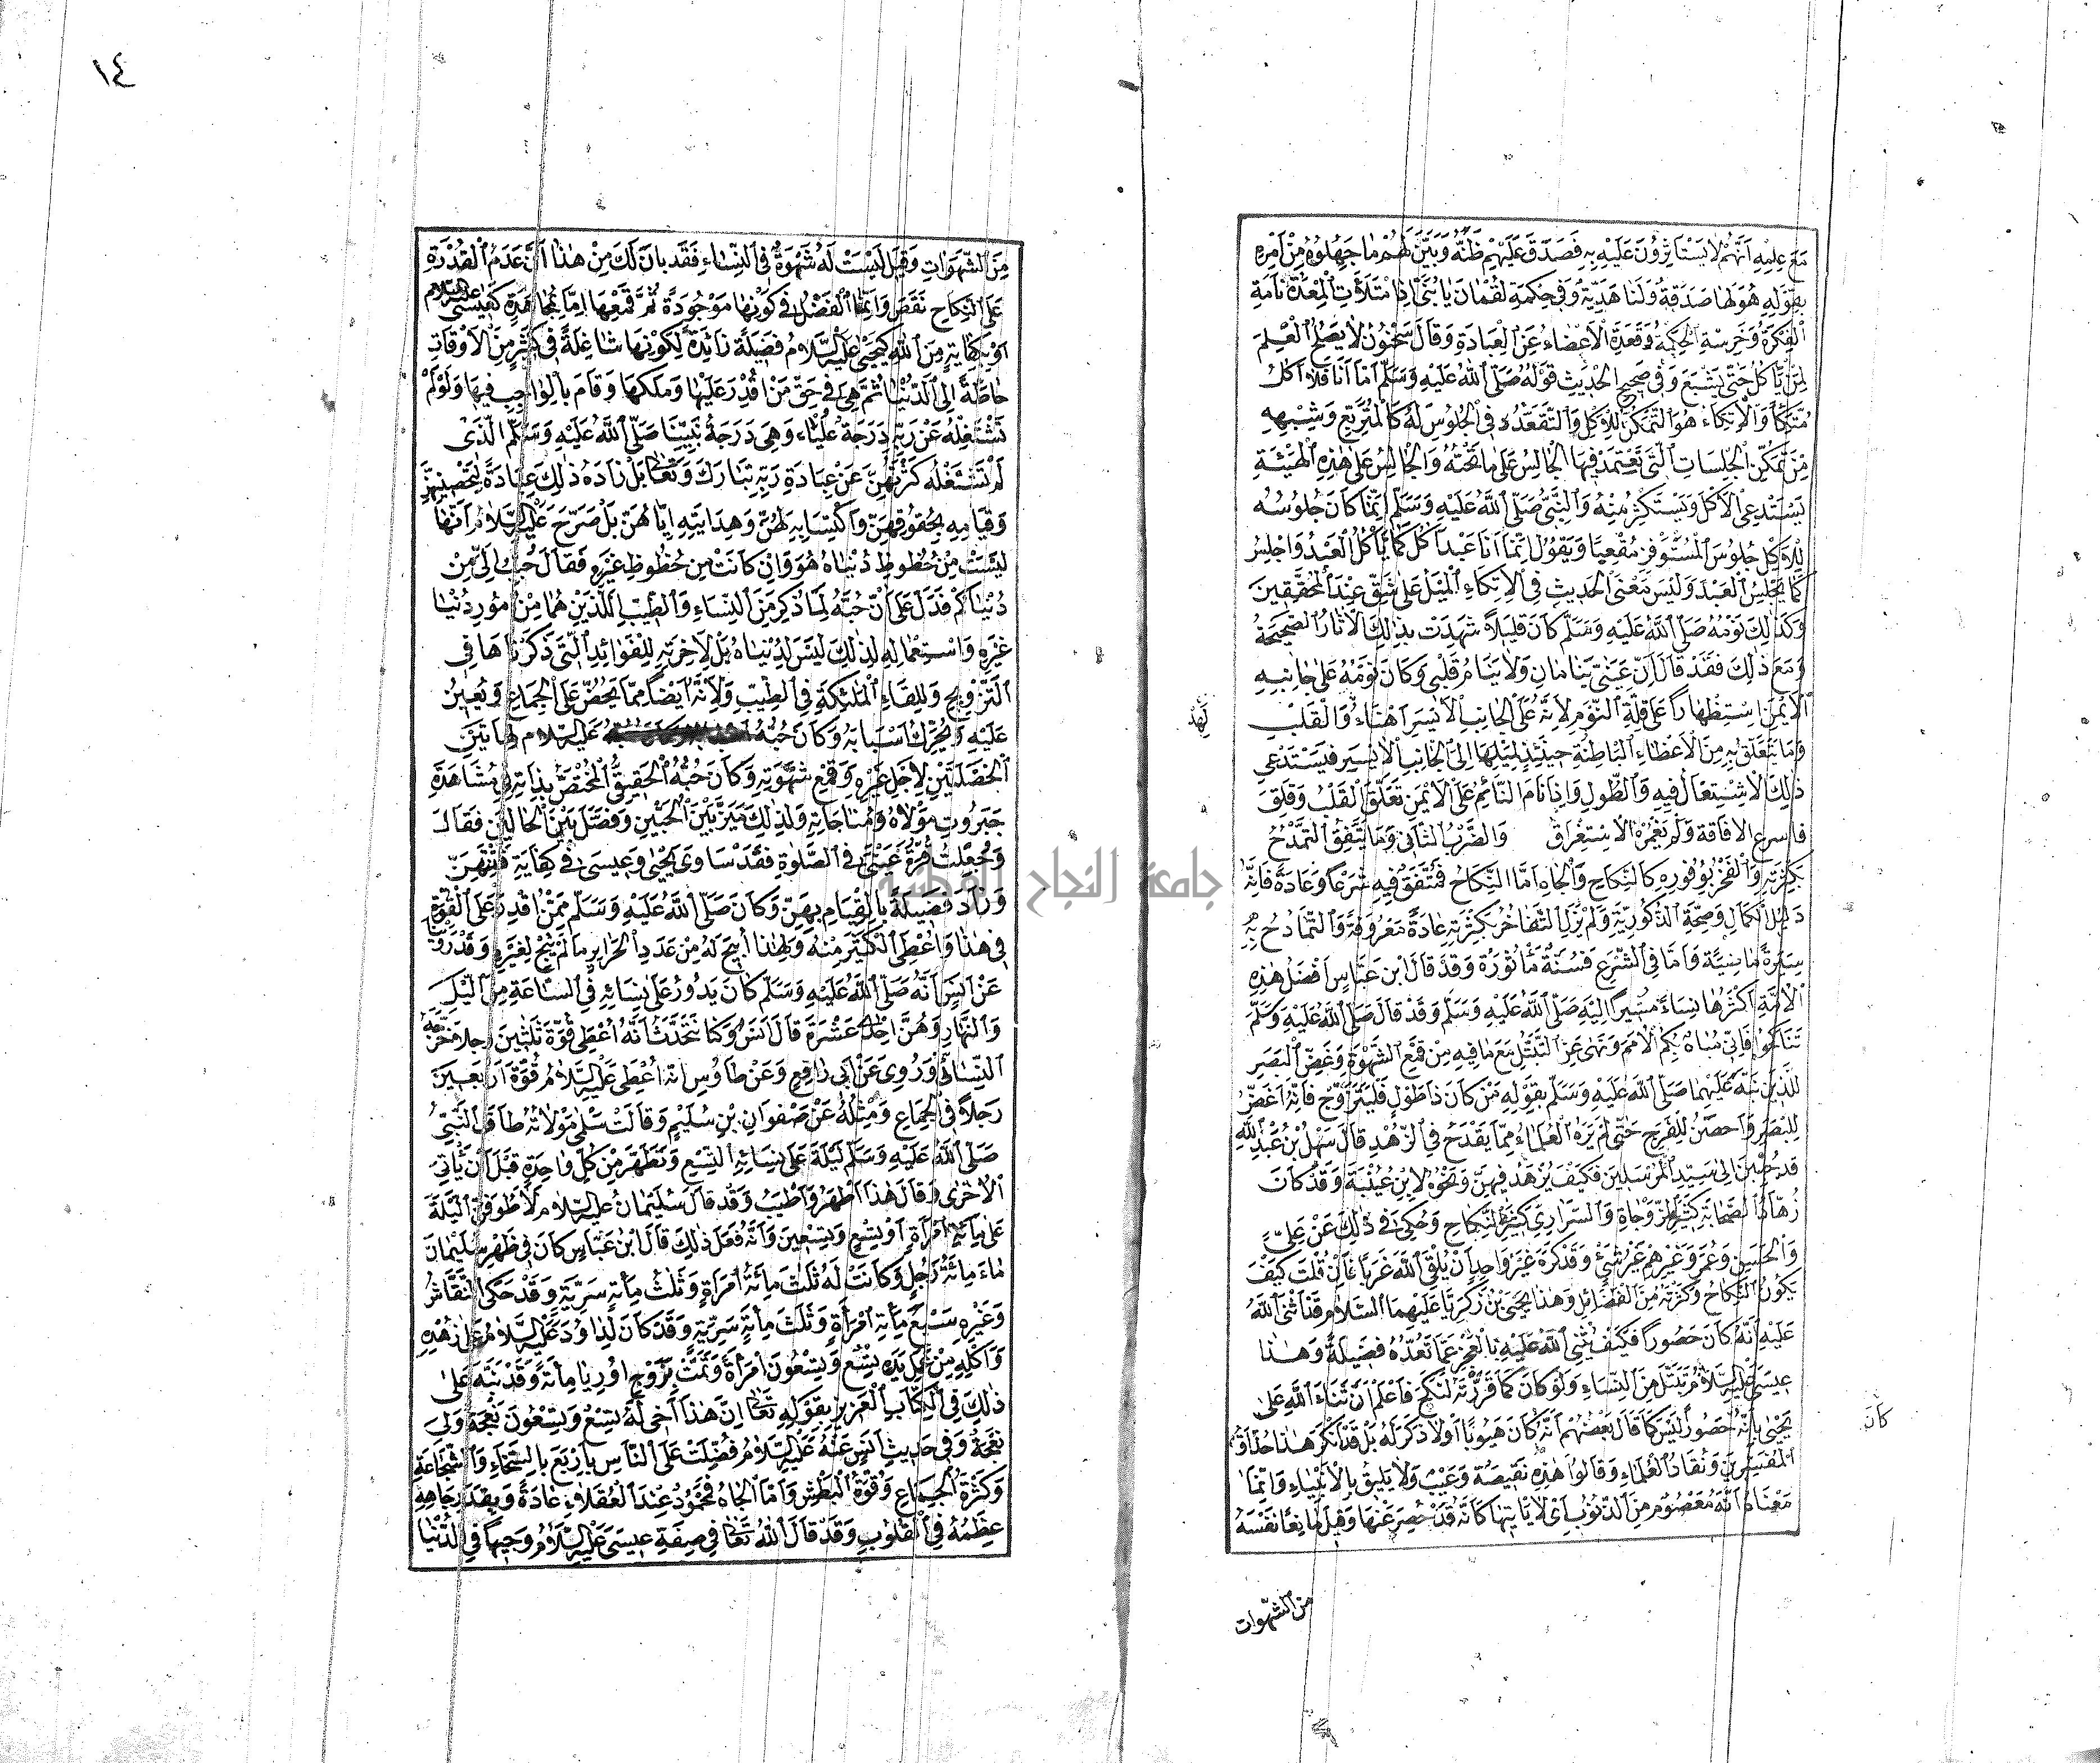 مَعَ عِلْمِهِ اَنَّهُمْ لَا يَسْتَأْثِرُونَ عَلَيْهِ بِهِ فَصَدَقَ عَلَيْهِمْ ظَنَّهُ وَبَيَّنَ لَهُمْ مَا جَهِلُوهُ مِنْ اَمْرِهِ
بِقَوْلِهِ هُوَ لَهَا صَدَقَةٌ وَلَنَا هَدِيَّةٌ وَفِى حِكْمَةِ لُقْمَانَ يَا بُنَىَّ اِذَا امْتَلَأَتِ الْمِعْدَةُ نَامَةِ
الْفِكْرَةُ وَخَرِسَتِ الْحِكْمَةُ وَقَعَدَةِ الْاَعْضَاءُ عَنِ الْعِبَادَةِ وَقَالَ سَحْنُونٌ لَا يَصْلُحُ الْعِلْمَ
لِمَنْ يَأْكُلُ حَتَّى يَشْبَعَ وَفِى صَحِيحِ الْحَدِيثِ قَوْلُهُ صَلَّى اللهُ عَلَيْهِ وَسَلَّمَ اَمَّا اَنَا فَلَا آكُلُ
مُتَّكِئًا وَالْاِتِّكَاءُ هُوَ التَّمَكُّنُ لِلْاَكْلِ وَالتَّقَعْدُدُ فِى الْجُلُوسِ لَهُ كَالْمُتَرَبِّعِ وَشِبْهِهِ
مِنْ تَمَكُّنِ الْجِلْسَاتِ الَّتِى تَعْتَمِدُ فِيهَا الْجَالِسُ عَلَى مَا تَحْتَهُ وَالْجَالِسُ عَلَى هٰذِهِ الْهَيْئَةِ
يَسْتَدْعِى الْاَكْلَ وَيَسْتَكْثِرُ مِنْهُ وَالنَّبِىُّ صَلَّى اللهُ عَلَيْهِ وَسَلَّمَ اِنَّمَا كَانَ جُلُوسُهُ
لِلْاَكْلِ جُلُوسَ الْمُسْتَوْفِزِ مُقْعِيًا وَيَقُولُ اِنَّمَا اَنَا عَبْدٌ آكُلُ كَمَا يَأْكُلُ الْعَبْدُ وَاَجْلِسُ
كَمَا يَجْلِسُ الْعَبْدُ وَلَيْسَ مَعْنَى الْحَدِيثِ فِى الْاِتِّكَاءِ الْمَيْلَ عَلَى شِقٍّ عِنْدَ الْمُحَقِّقِينَ
وَكَذٰلِكَ نَوْمُهُ صَلَّى اللهُ عَلَيْهِ وَسَلَّمَ كَانَ قَلِيلًا شَهِدَتْ بِذٰلِكَ الْآثَارُ الصَّحِيحَةُ
وَمَعَ ذٰلِكَ فَقَدْ قَالَ اِنَّ عَيْنَىَّ يَنَامَانِ وَلَا يَنَامُ قَلْبِى وَكَانَ نَوْمُهُ عَلَى جَانِبِهِ
الْاَيْمَنِ اسْتِظْهَارًا عَلَى قِلَّةِ النَّوْمِ لِاَنَّهُ عَلَى الْجَانِبِ الْاَيْسَرِ اَهْنَاءُ وَالْقَلْبِ
وَمَا يَتَعَلَّقُ بِهِ مِنَ الْاَعْضَاءِ الْبَاطِنَةِ حِينَئِذٍ لِمَيْلِهَا اِلَى الْجَانِبِ الْاَيْسَرِ فَيَسْتَدْعِى
ذٰلِكَ الْاِسْتِثْقَالَ فِيهِ وَالطُّولَ وَاِذَا نَامَ النَّائِمُ عَلَى الْاَيْمَنِ تَعَلَّقَ الْقَلْبُ وَقَلِقَ
فَاَسْرَعَ الْاِفَاقَةَ وَلَمْ يَغْمُرْهُ الْاِسْتِغْرَاقُ وَالضَّرْبُ الثَّانِى وَمَا يَتَّفِقُ التَّمَدُّحُ
بِكَثْرَتِهِ وَالْفَخْرُ بِوُفُورِهِ كَالنِّكَاحِ وَالْجَاهِ اَمَّا النِّكَاحُ فَمُتَّفَقٌ فِيهِ شَرْعًا وَعَادَةً فَاِنَّهُ
دَلِيلُ الْكَمَالِ وَصِحَّةِ الذُّكُورِيَّةِ وَلَمْ يَزَلِ التَّفَاخُرُ بِكَثْرَتِهِ عَادَةً مَعْرُوفَةً وَالتَّمَادُحُ بِهِ
سِيرَةً مَاضِيَةً وَاَمَّا فِى الشَّرْعِ فَسُنَّةٌ مَأْثُورَةٌ وَقَدْ قَالَ ابْنُ عَبَّاسٍ اَفْضَلُ هٰذِهِ
الْاُمَّةِ اَكْثَرُهَا نِسَاءً مُشِيرًا اِلَيْهِ صَلَّى اللهُ عَلَيْهِ وَسَلَّمَ وَقَدْ قَالَ صَلَّى اللهُ عَلَيْهِ وَسَلَّمَ
تَنَاكَحُوا فَاِنِّى مُبَاهٍ بِكُمُ الْاُمَمَ وَنَهَى عَنِ التَّبَتُّلِ مَعَ مَا فِيهِ مِنْ قَمْعِ الشَّهْوَةِ وَغَضِّ الْبَصَرِ
اللَّذَيْنِ نَبَّهَ عَلَيْهِمَا صَلَّى اللهُ عَلَيْهِ وَسَلَّمَ بِقَوْلِهِ مَنْ كَانَ ذَا طَوْلٍ فَلْيَتَزَوَّجْ فَاِنَّهُ اَغَضُّ
لِلْبَصَرِ وَاَحْصَنُ لِلْفَرْجِ حَتَّى لَمْ يَرَهُ الْعُلَمَاءُ مِمَّا يَقْدَحُ فِى الزُّهْدِ قَالَ سَهْلُ بْنُ عَبْدِ اللهِ
قَدْ حُبِّبْنَ اِلَى سَيِّدِ الْمُرْسَلِينَ فَكَيْفَ يُزْهَدُ فِيهِنَّ وَنَحْوُهُ لِابْنِ عُيَيْنَةَ وَقَدْ كَانَ
زُهَّادُ الصَّحَابَةِ كَثِيرِى الزَّوْجَاةِ وَالسَّرَارِى كَثِيرِى النِّكَاحِ وَحُكِىَ فِى ذٰلِكَ عَنْ عَلِىٍّ
وَالْحَسَنِ وَعُمَرَ وَغَيْرِهِمْ غَيْرُ شَىْءٍ وَقَدْ كَرِهَ غَيْرُ وَاحِدٍ اَنْ يَلْقَى اللهَ عَزَبًا فَاِنْ قُلْتَ كَيْفَ
يَكُونُ النِّكَاحُ وَكَثْرَتُهُ مِنَ الْفَضَائِلِ وَهٰذَا يَحْيَى بْنُ زَكَرِيَّا عَلَيْهِمَا السَّلَامُ قَدْ اَثْنَى اللهُ
عَلَيْهِ اَنَّهُ كَانَ حَصُورًا فَكَيْفَ يُثْنِى اللهُ عَلَيْهِ بِالْعَجْزِ عَمَّا تَعُدُّهُ فَضِيلَةً وَهٰذَا
عِيسَى عَلَيْهِ السَّلَامُ تَبَتَّلَ مِنَ النِّسَاءِ وَلَوْ كَانَ كَمَا قَرَّرْتَهُ لَنَكَحَ فَاعْلَمْ اَنَّ ثَنَاءَ اللهِ عَلَى
يَحْيَى بِاَنَّهُ حَصُورٌ لَيْسَ كَمَا قَالَ بَعْضُهُمْ اِنَّهُ كَانَ هَيُوبًا اَوْ لَا ذَكَرَ لَهُ بَلْ قَدْ اَنْكَرَ هٰذَا حُذَّاقُ
الْمُفَسِّرِينَ وَنُقَّادُ الْعُلَمَاءِ وَقَالُوا هٰذِهِ نَقِيصَةٌ وَعَيْبٌ وَلَا يَلِيقُ بِالْاَنْبِيَاءِ وَاِنَّمَا
مَعْنَاهُ اَنَّهُ مَعْصُومٌ مِنَ الذُّنُوبِ اَىْ لَا يَأْتِيهَا كَاَنَّهُ قَدْ حُصِرَ عَنْهَا وَقِيلَ مَانِعًا نَفْسَهُ
مِنَ الشَّهَوَاتِ
كَانَ
١٤
مِنَ الشَّهَوَاتِ وَقِيلَ لَيْسَتْ لَهُ شَهْوَةٌ فِى النِّسَاءِ فَقَدْ بَانَ لَكَ مِنْ هٰذَا اَنَّ عَدَمَ الْقُدْرَةِ
عَلَى النِّكَاحِ نَقْصٌ وَاِنَّمَا الْفَضْلُ فِى كَوْنِهَا مَوْجُودَةً ثُمَّ قَمْعُهَا اِمَّا بِمُجَاهَدَةٍ كَعِيسَى عليه السلام
اَوْ بِكِفَايَةٍ مِنَ اللهِ كَيَحْيَى عَلَيْهِ السَّلَامُ فَضِيلَةٌ زَائِدَةٌ لِكَوْنِهَا شَاغِلَةً فِى كَثِيرٍ مِنَ الْاَوْقَاتِ
حَاطَّةً اِلَى الدُّنْيَا ثُمَّ هِىَ فِى حَقِّ مَنْ اُقْدِرَ عَلَيْهَا وَمَلَكَهَا وَقَامَ بِالْوَاجِبِ فِيهَا وَلَوْ لَمْ
تَشْغَلْهُ عَنْ رَبِّهِ دَرَجَةٌ عُلْيَاءُ وَهِىَ دَرَجَةُ نَبِيِّنَا صَلَّى اللهُ عَلَيْهِ وَسَلَّمَ الَّذِى
لَمْ تَشْغَلْهُ كَثْرَتُهُنَّ عَنْ عِبَادَةِ رَبِّهِ تَبَارَكَ وَتَعَالَى بَلْ زَادَهُ ذٰلِكَ عِبَادَةً لِتَحْصِينِهِنَّ
وَقِيَامِهِ بِحُقُوقِهِنَّ وَاكْتِسَابِهِ لَهُنَّ وَهِدَايَتِهِ اِيَّاهُنَّ بَلْ صَرَّحَ عَلَيْهِ السَّلَامُ اَنَّهَا
لَيْسَتْ مِنْ حُظُوظِ دُنْيَاهُ هُوَ وَاِنْ كَانَتْ مِنْ حُظُوظِ غَيْرِهِ فَقَالَ حُبِّبَ اِلَىَّ مِنْ
دُنْيَاكُمْ فَدَلَّ عَلَى اَنَّ حُبَّهُ لِمَا ذُكِرَ مِنَ النِّسَاءِ وَالطِّيبِ اللَّذَيْنِ هُمَا مِنْ اُمُورِ دُنْيَا
غَيْرِهِ وَاسْتِعْمَالِهِ لِذٰلِكَ لَيْسَ لِدُنْيَاهُ بَلْ لِآخِرَتِهِ لِلْفَوَائِدِ الَّتِى ذَكَرْنَاهَا فِى
التَّزْوِيجِ وَلِلِقَاءِ الْمَلٰئِكَةِ فِى الطِّيبِ وَلِاَنَّهُ اَيْضًا مِمَّا يَحُضُّ عَلَى الْجِمَاعِ وَيُعِينُ
عَلَيْهِ وَيُحَرِّكُ اَسْبَابَهُ وَكَانَ حُبُّهُ عَلَيْهِ السَّلَامُ لِهَاتَيْنِ
الْخَصْلَتَيْنِ لِاَجْلِ غَيْرِهِ وَقَمْعِ شَهْوَتِهِ وَكَانَ حُبُّهُ الْحَقِيقِىُّ الْمُخْتَصُّ بِذَاتِهِ فِى مُشَاهَدَةِ
جَبَرُوتِ مَوْلَاهُ وَمُنَاجَاتِهِ وَلِذٰلِكَ مَيَّزَ بَيْنَ الْحُبَّيْنِ وَفَصَلَ بَيْنَ الْحَالَيْنِ فَقَالَ
وَجُعِلَتْ قُرَّةُ عَيْنِى فِى الصَّلٰوةِ فَقَدْ سَاوَى يَحْيَى وَعِيسَى فِى كِفَايَةِ فِتْنَتِهِنَّ
وَزَادَ فَضِيلَةً بِالْقِيَامِ بِهِنَّ وَكَانَ صَلَّى اللهُ عَلَيْهِ وَسَلَّمَ مِمَّنْ اُقْدِرَ عَلَى الْقُوَّةِ
فِى هٰذَا وَاُعْطِىَ الْكَثِيرَ مِنْهُ وَلِهٰذَا اُبِيحَ لَهُ مِنْ عَدَدِ الْحَرَايِرِ مَا لَمْ يُبَحْ لِغَيْرِهِ وَقَدْ رُوِّينَا
عَنْ اَنَسٍ اَنَّهُ صَلَّى اللهُ عَلَيْهِ وَسَلَّمَ كَانَ يَدُورُ عَلَى نِسَائِهِ فِى السَّاعَةِ مِنَ اللَّيْلِ
وَالنَّهَارِ وَهُنَّ اِحْدَى عَشْرَةَ قَالَ اَنَسٌ وَكُنَّا نَتَحَدَّثُ اَنَّهُ اُعْطِىَ قُوَّةَ ثَلٰثِينَ رجلا خَرَّجَهُ
النِّسَائِىُّ وَرُوِىَ عَنْ اَبِى رَافِعٍ وَعَنْ طَاوُسٍ اَنَّهُ اُعْطِىَ عَلَيْهِ السَّلَامُ قُوَّةَ اَرْبَعِينَ
رَجُلًا فِى الْجِمَاعِ وَمِثْلُهُ عَنْ صَفْوَانِ بْنِ سُلَيْمٍ وَقَالَتْ سَلْمَى مَوْلَاتُهُ طَافَ النَّبِىُّ
صَلَّى اللهُ عَلَيْهِ وَسَلَّمَ لَيْلَةً عَلَى نِسَائِهِ التِّسْعِ وَتَطَهَّرَ مِنْ كُلِّ وَاحِدَةٍ قَبْلَ اَنْ يَأْتِىَ
الْاُخْرَى وَقَالَ هٰذَا اَطْهَرُ وَاَطْيَبُ وَقَدْ قَالَ سُلَيْمَانُ عَلَيْهِ السَّلَامُ لَاَطُوفَنَّ اللَّيْلَةَ
عَلَى مِائَةِ امْرَأَةٍ اَوْ تِسْعٍ وَتِسْعِينَ وَاَنَّهُ فَعَلَ ذٰلِكَ قَالَ ابْنُ عَبَّاسٍ كَانَ فِى ظَهْرِ سُلَيْمَانَ
مَاءُ مِائَةُ رَجُلٍ وَكَانَتْ لَهُ ثَلٰثُ مِائَةُ امْرَأَةٍ وَثَلٰثُ مِأَةِ سَرِّيَّةٍ وَقَدْ حَكَى النَّقَّاشُ
وَغَيْرُهُ سَبْعَ مِأَةِ امْرَأَةٍ وَثَلٰثَ مِأَةِ سَرِّيَّةٍ وَقَدْ كَانَ لِدَاوُدَ عَلَيْهِ السَّلَامُ عَلَى زُهْدِهِ
وَاَكْلِهِ مِنْ عَمَلِ يَدِهِ تِسْعٌ وَتِسْعُونَ امْرَأَةً وَتَمَّتْ بِزَوْجِ اُورِيَا مِأَةً وَقَدْ نَبَّهَ عَلَى
ذٰلِكَ فِى الْكِتَابِ الْعَزِيزِ بِقَوْلِهِ تَعَالَى اِنَّ هٰذَا اَخِى لَهُ تِسْعٌ وَتِسْعُونَ نَعْجَةً وَلِىَ
نَعْجَةٌ وَفِى حَدِيثِ اَنَسٍ عَنْهُ عَلَيْهِ السَّلَامُ فُضِّلْتُ عَلَى النَّاسِ بِاَرْبَعٍ بِالسَّخَاءِ وَالشَّجَاعَةِ
وَكَثْرَةُ الْجِمَاعِ وَقُوَّةُ الْبَطْشِ وَاَمَّا الْجَاهُ فَمَحْمُودٌ عِنْدَ الْعُقَلَاءِ عَادَةً وَبِقَدْرِ جَاهِهِ
عِظَمُهُ فِى الْقُلُوبِ وَقَدْ قَالَ اللهُ تَعَالَى فِى صِفَةِ عِيسَى عَلَيْهِ السَّلَامُ وَجِيهًا فِى الدُّنْيَا
جامعة النجاح الوطنية